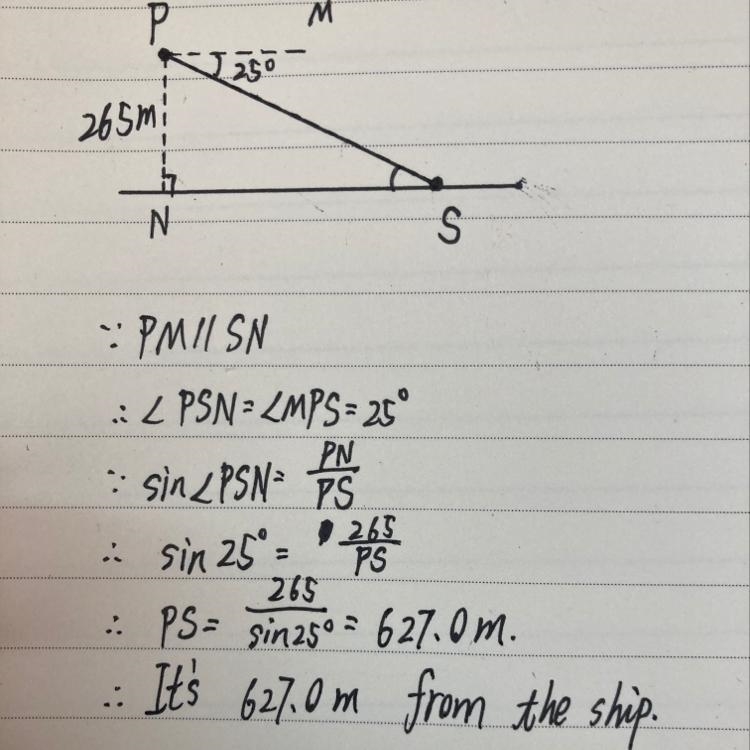 P M
25°
265m
N S
∵ PM//SN
∴ ∠PSN=∠MPS=25°
∵ sin∠PSN= PN/PS
∴ sin25°= 265/PS
∴ PS= 265/sin25° = 627.0m.
∴ It's 627.0m from the ship.